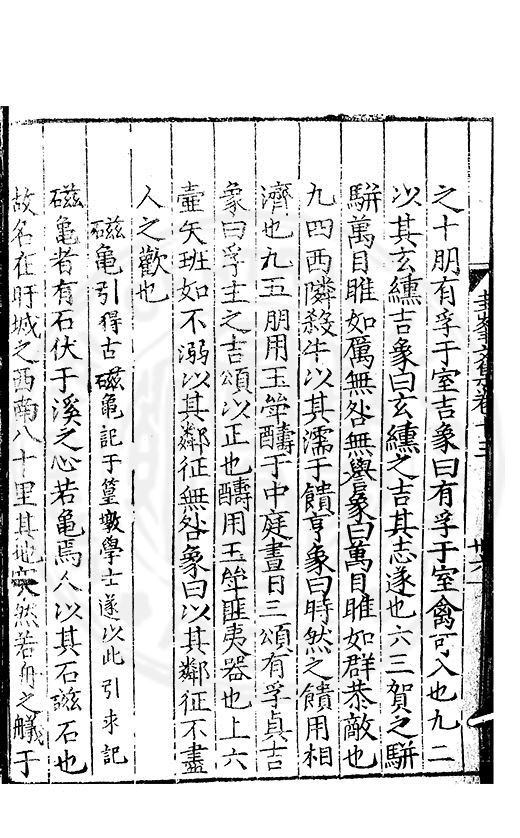 圭峯文集卷十三
之十朋有孚于室吉象曰有孚于室禽可入也九二
以其玄纁吉象曰玄纁之吉其志遂也六三賀之駢
駢萬目睢如厲無咎無譽象曰萬目睢如群恭敵也
九四西隣殺牛以其濡于饋亨象曰時然之饋用相
濟也九五朋用玉斝醻于中庭晝日三頌有孚貞吉
象曰孚主之吉頌以正也醻用玉斝匪夷器也上六
壼矢班如不溺以其鄰征無咎象曰以其鄰征不盡
人之歡也
磁龜引得古磁龜記于篁墩學士遂以此引求記
磁龜者有石伏于溪之心若龜焉人以其石磁石也
故名在盱城之西南八十里其地突然若舟之艤于